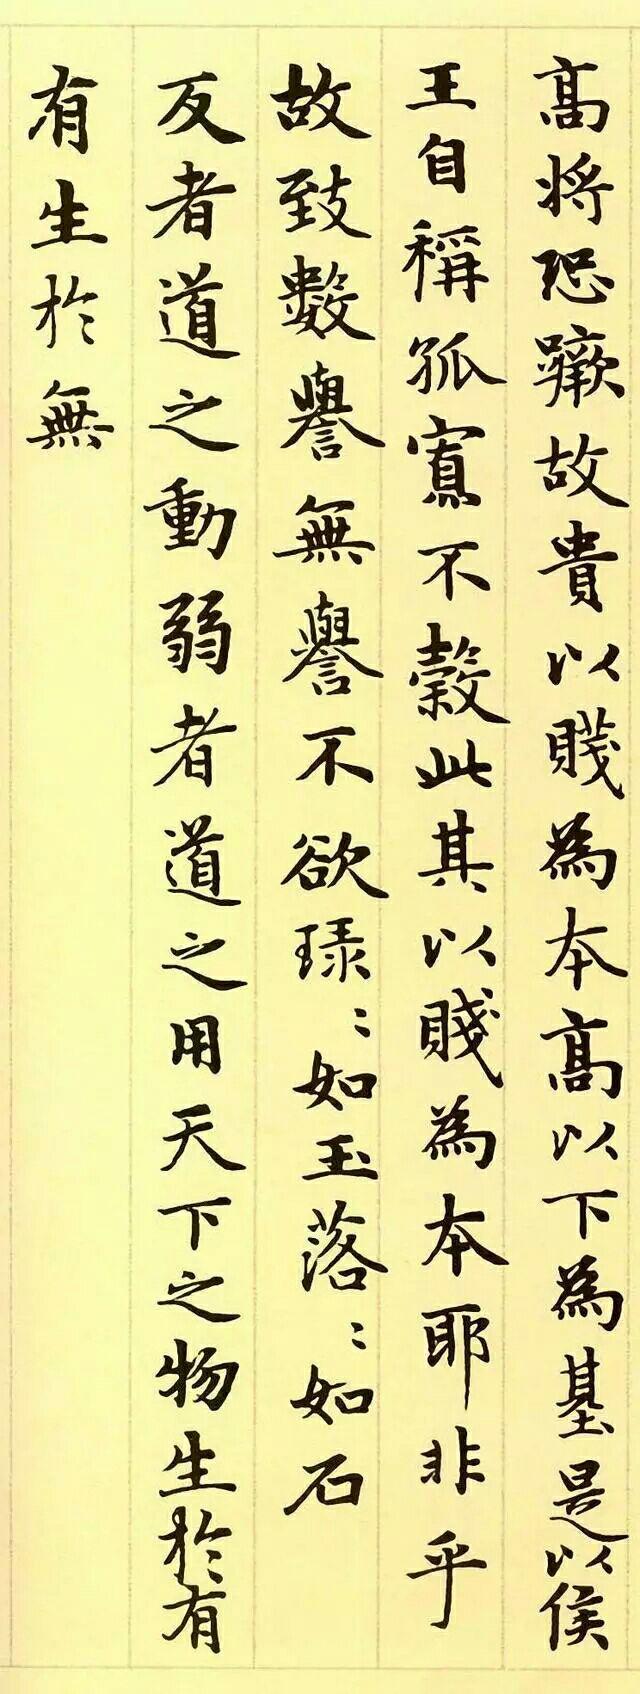 高將恐蹶故貴以賤為本高以下為基是以侯
王自稱孤寡不穀此其以賤為本耶非乎
故致數譽無譽不欲琭〻如玉落〻如石
反者道之動弱者道之用天下之物生於有
有生於無